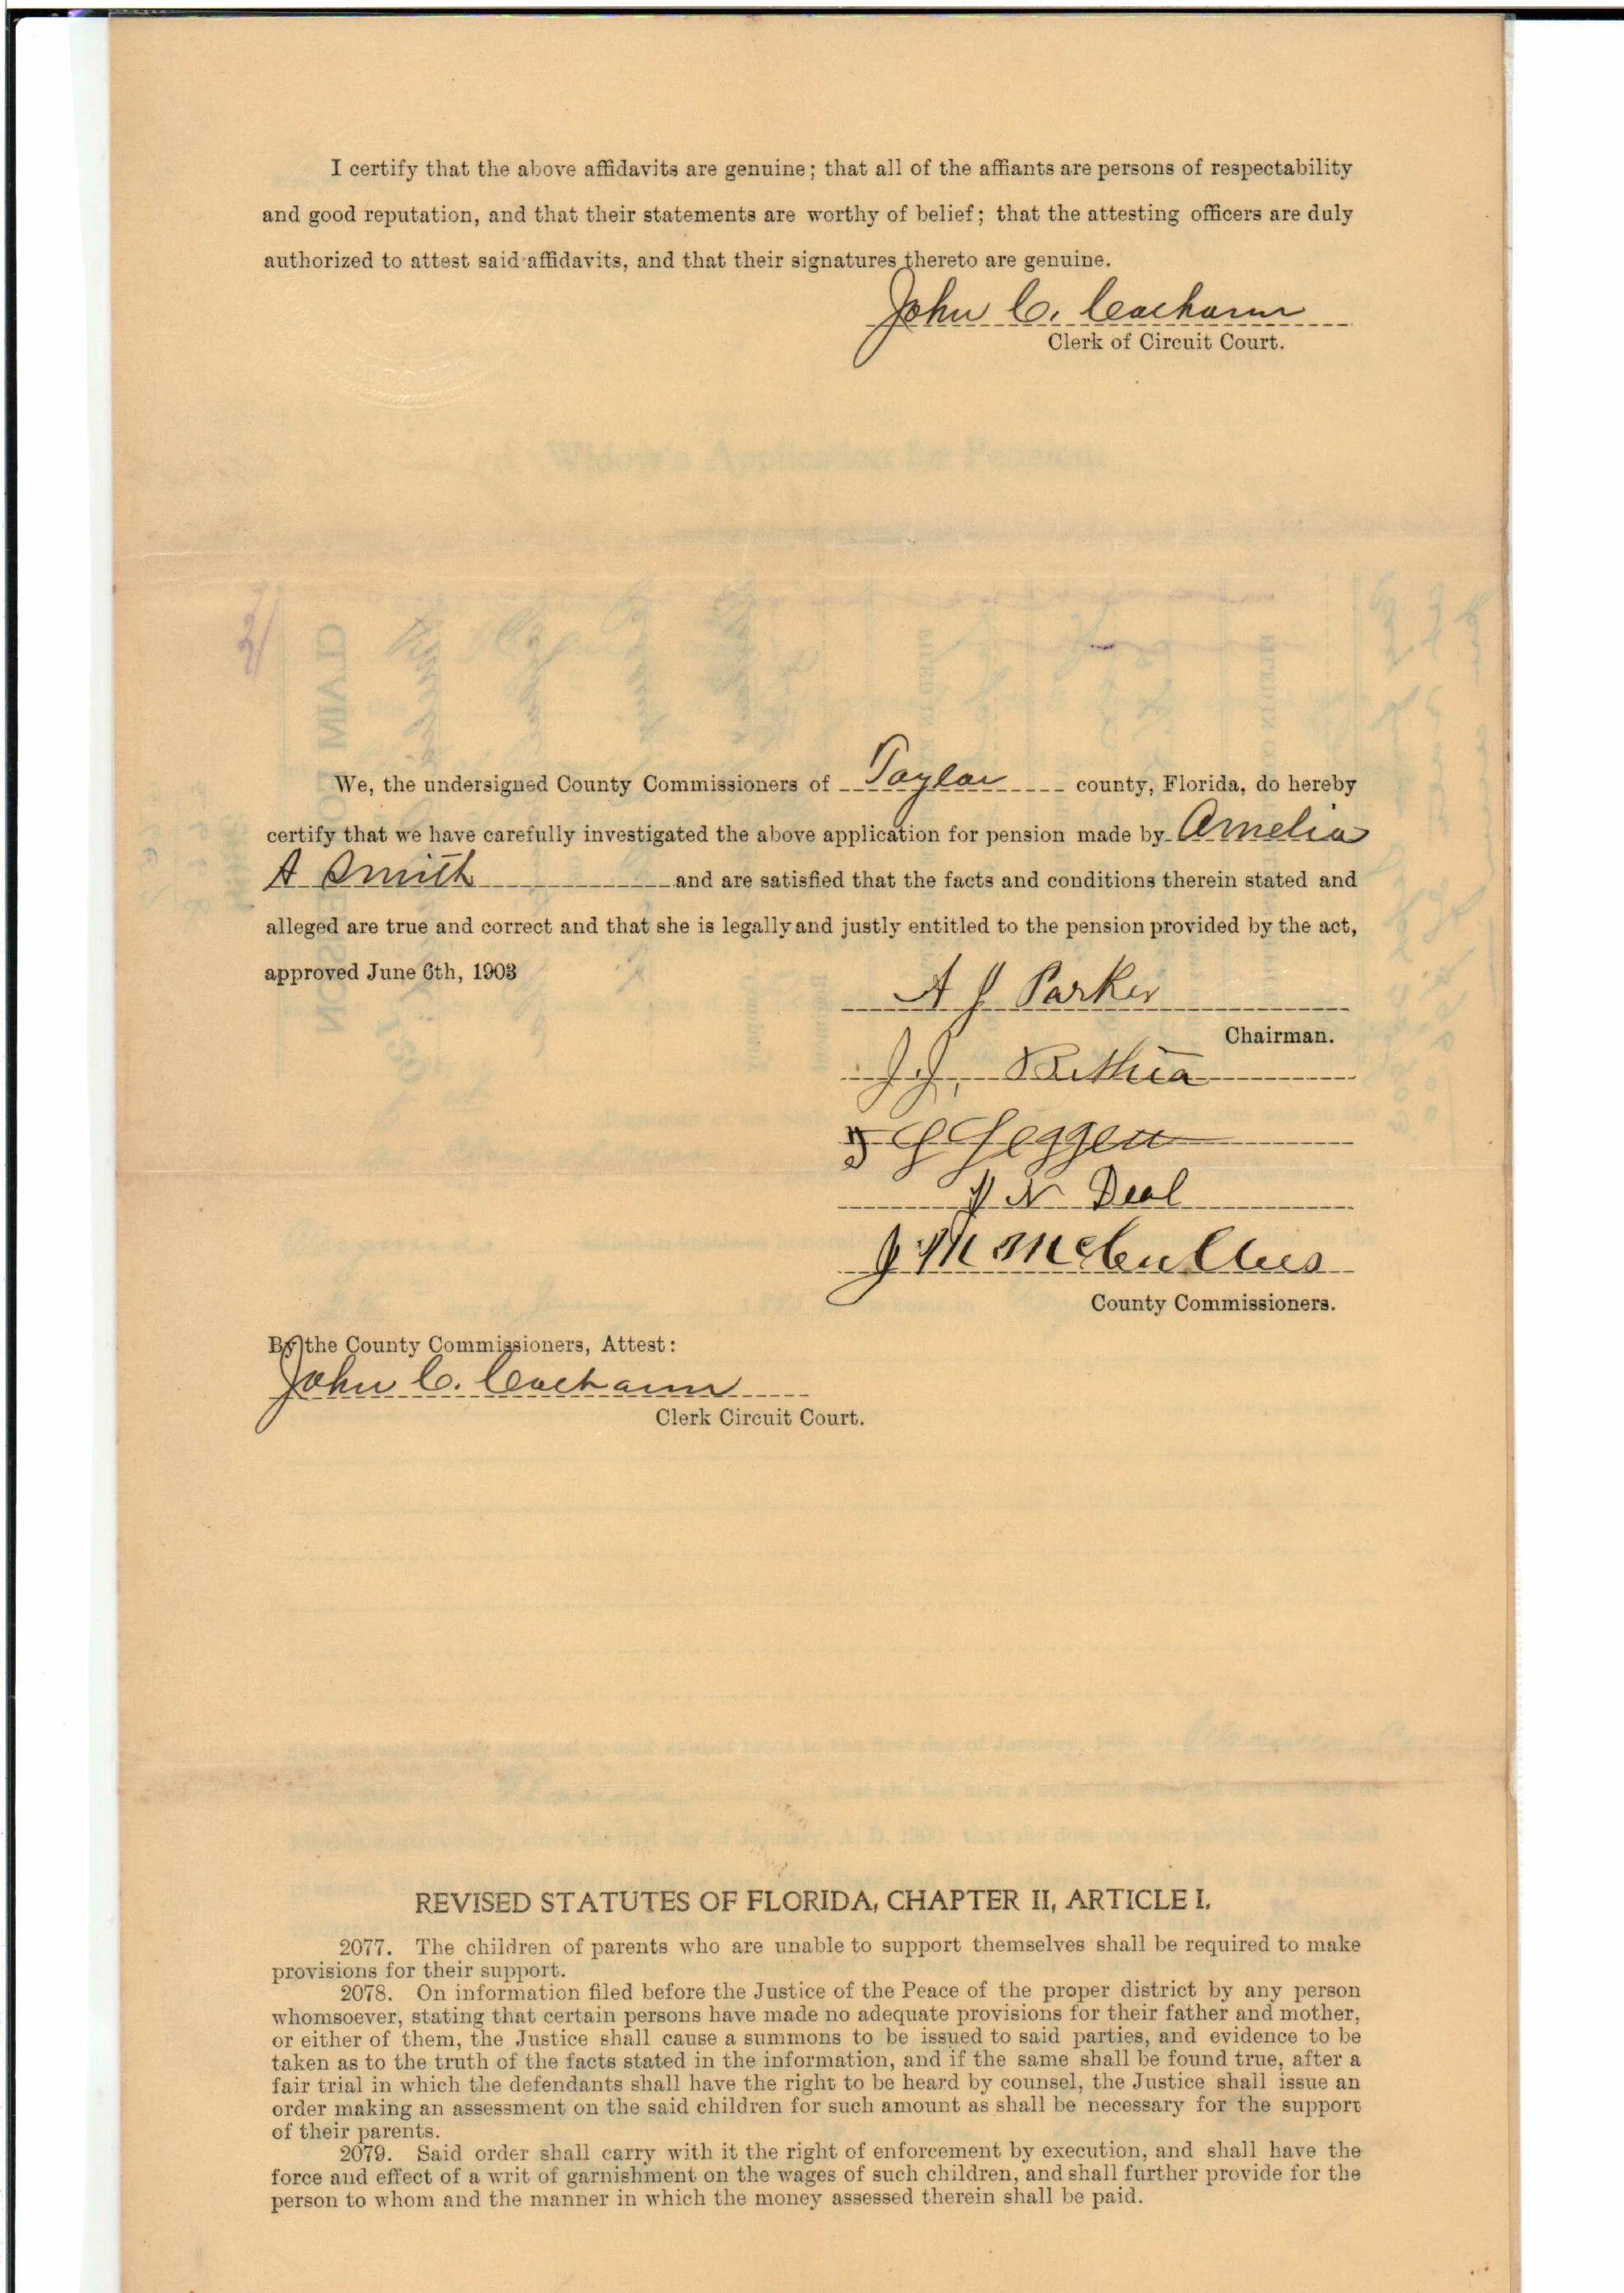 I certify that the above affidavits are genuine; that all of the affiants are persons of respectability
and good reputation, and that their statements are worthy of belief; that the attesting officers are duly
authorized to attest said affidavits, and that their signatures thereto are genuine.
John C.
Clerk of Circuit Court.
Widow's Application for Pension
We, the undersigned County Commissioners of Taylor county, Florida, do hereby
certify that we have carefully investigated the above application for pension made by Amelia
A Smith and are satisfied that the facts and conditions therein stated and
alleged are true and correct and that she is legally and justly entitled to the pension provided by the act,
approved June 6th, 1903
A J Parker
Chairman.
J. J. Bethea
N Deal
J M
County Commissioners.
By the County Commissioners, Attest:
John C.
Clerk Circuit Court.
REVISED STATUTES OF FLORIDA, CHAPTER II, ARTICLE I.
2077. The children of parents who are unable to support themselves shall be required to make
provisions for their support.
2078. On information filed before the Justice of the Peace of the proper district by any person
whomsoever, stating that certain persons have made no adequate provisions for their father and mother,
or either of them, the Justice shall cause a summons to be issued to said parties, and evidence to be
taken as to the truth of the facts stated in the information, and if the same shall be found true, after a
fair trial in which the defendants shall have the right to be heard by counsel, the Justice shall issue an
order making an assessment on the said children for such amount as shall be necessary for the support
of their parents.
2079. Said order shall carry with it the right of enforcement by execution, and shall have the
force and effect of a writ of garnishment on the wages of such children, and shall further provide for the
person to whom and the manner in which the money assessed therein shall be paid.